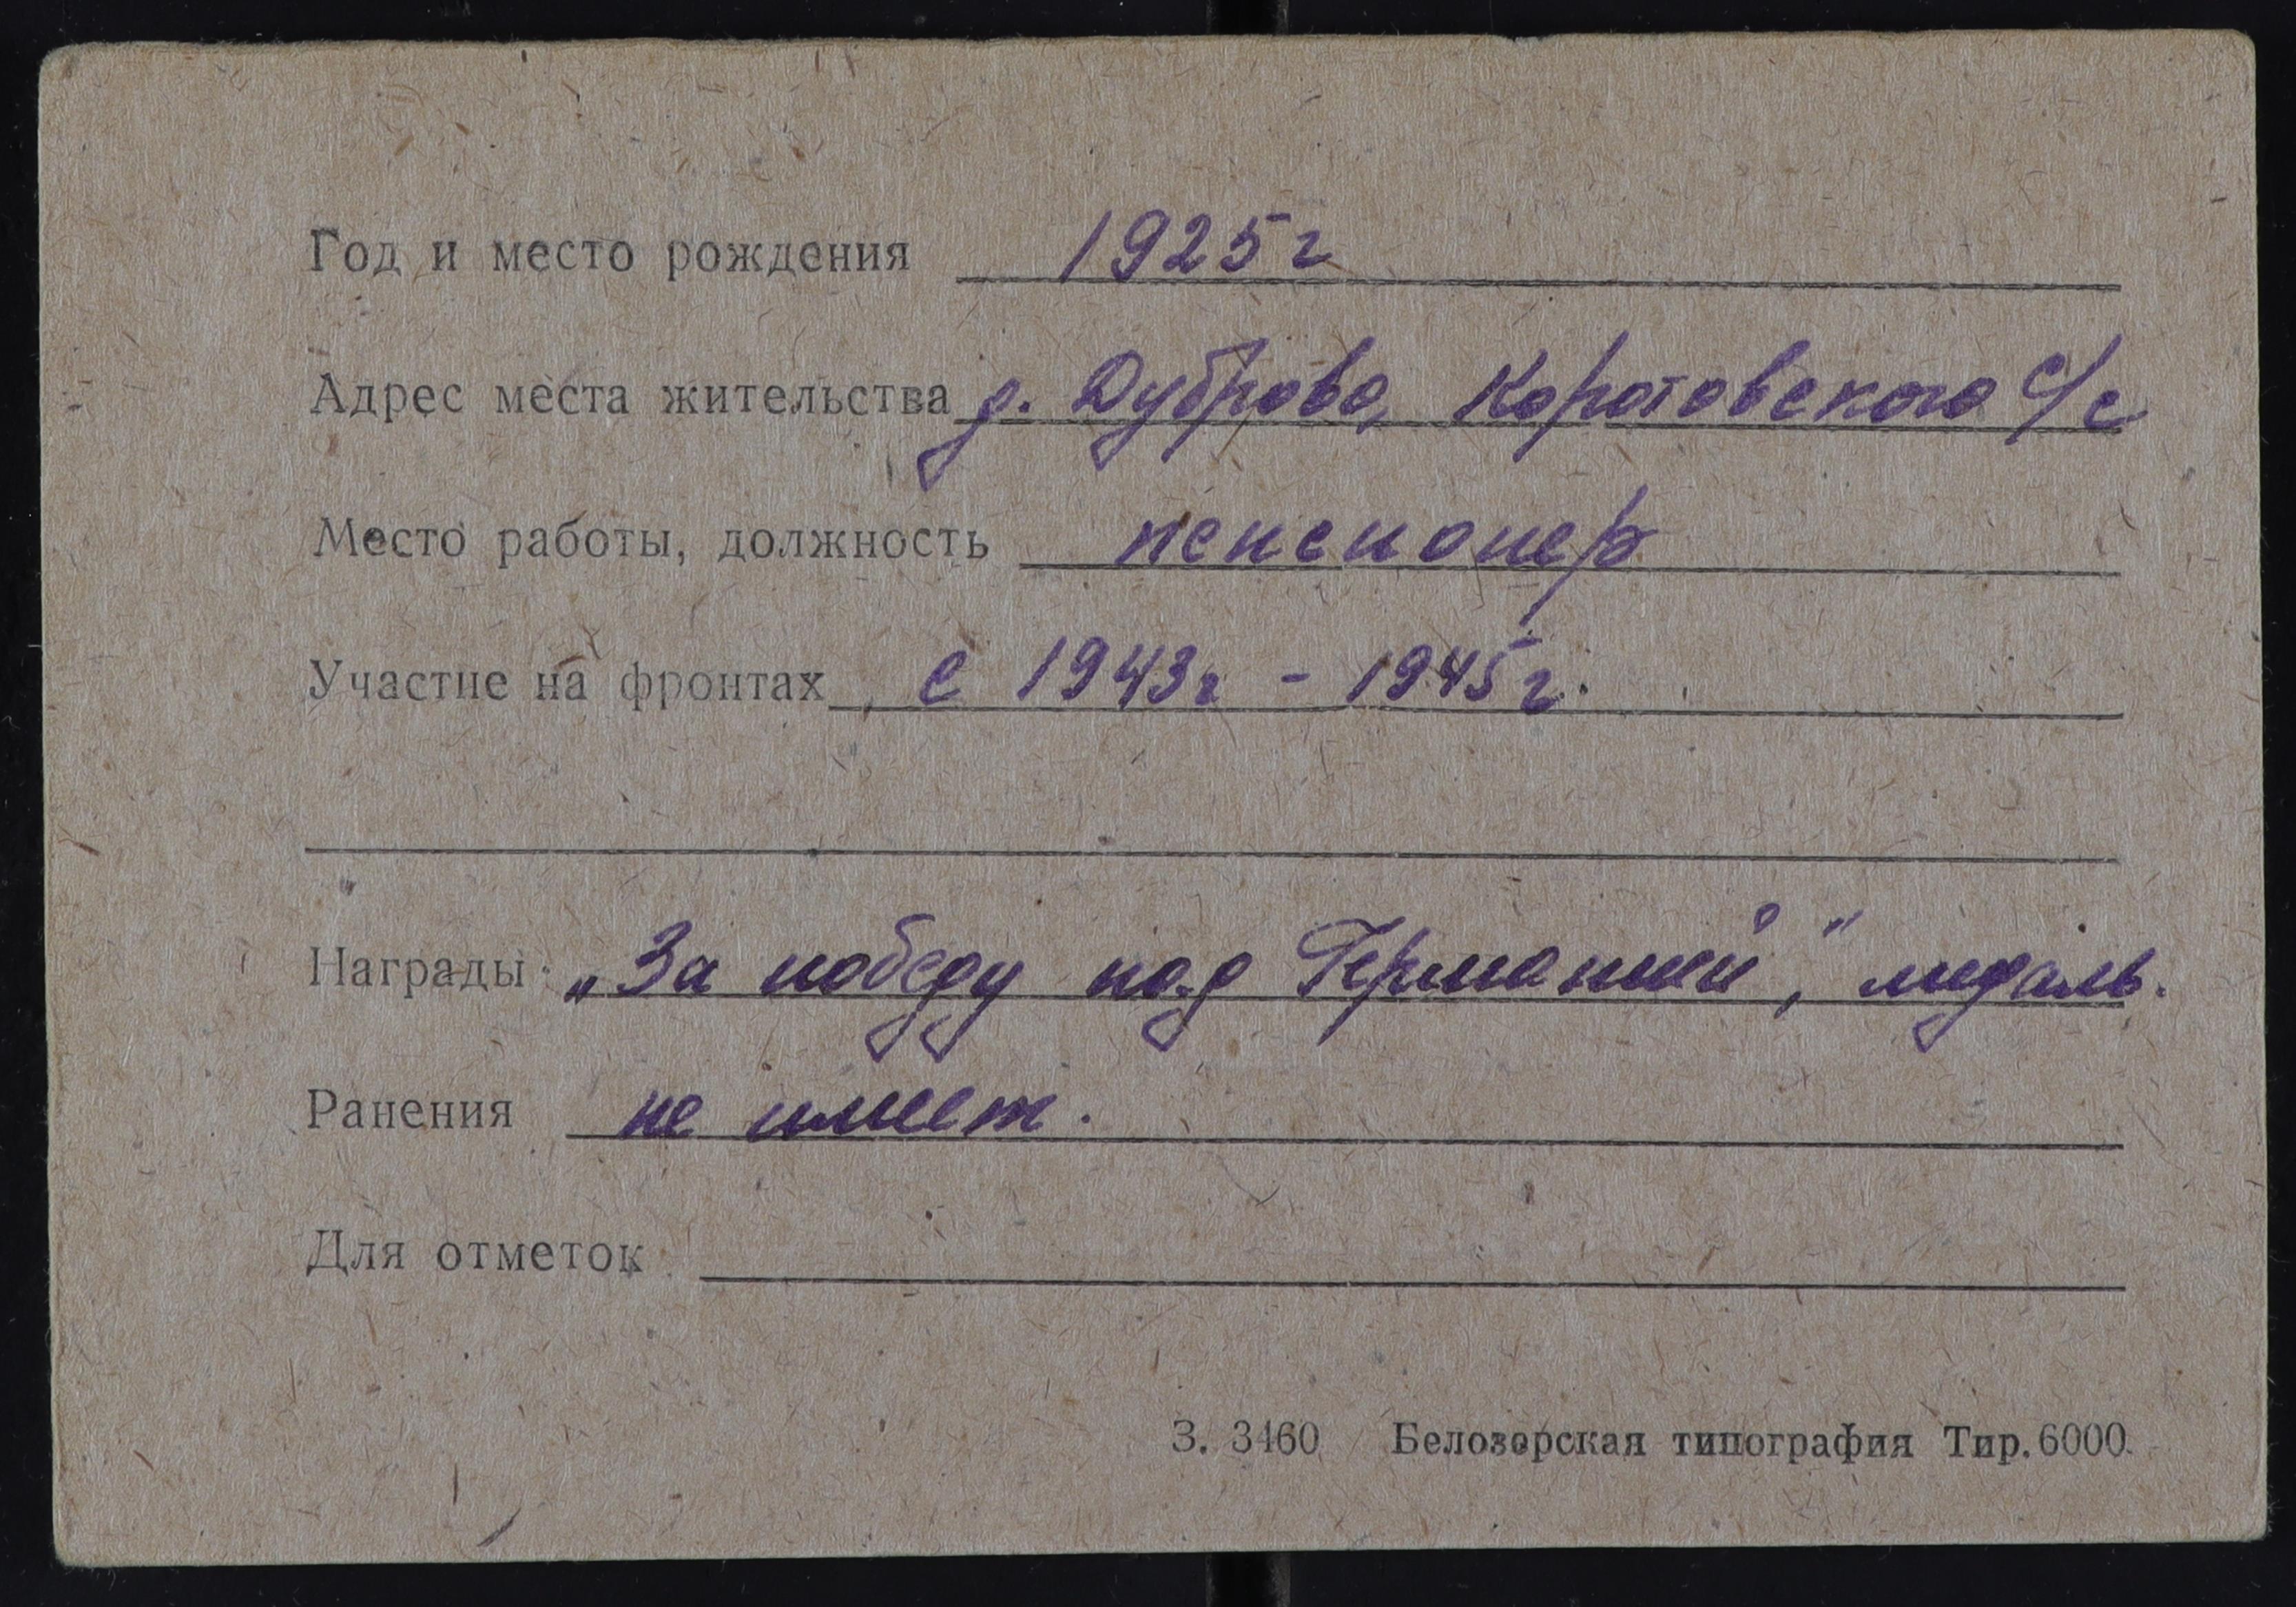 Год и место рождения 1925 г
Адрес места жительства д. Дуброво, Коротовского с/с
Место работы, должность пенсионер
Участие на фронтах с 1943 г - 1945 г.
Награды „За победу над Германией", медаль.
Ранения не имеет.
Для отметок
З. 3460 Белозерская типография Тир. 6000